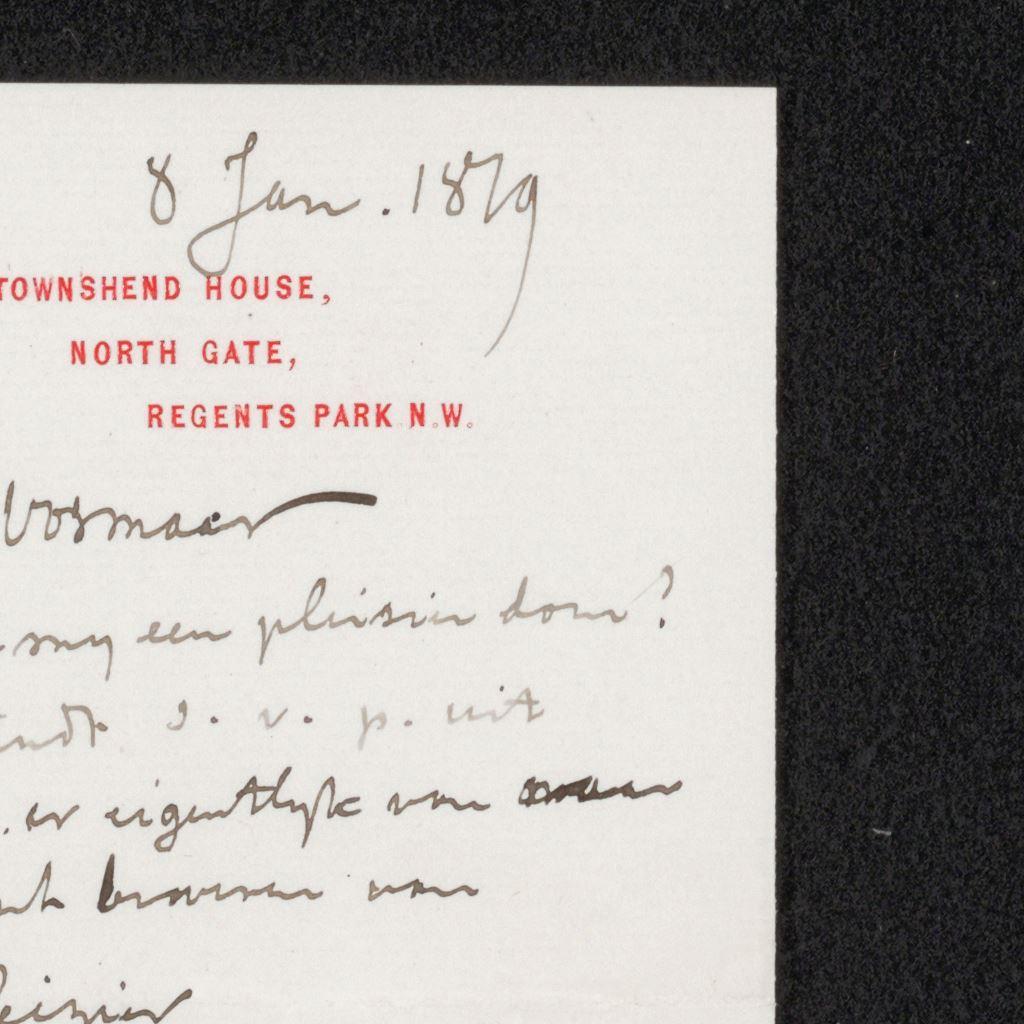 8 Jan. 1879
TOWNSHEND HOUSE,
NORTH GATE,
REGENTS PARK N.W.
Vosmaer
my een pleisier doen?
s. v. p. uit
er eigentlyk van
van